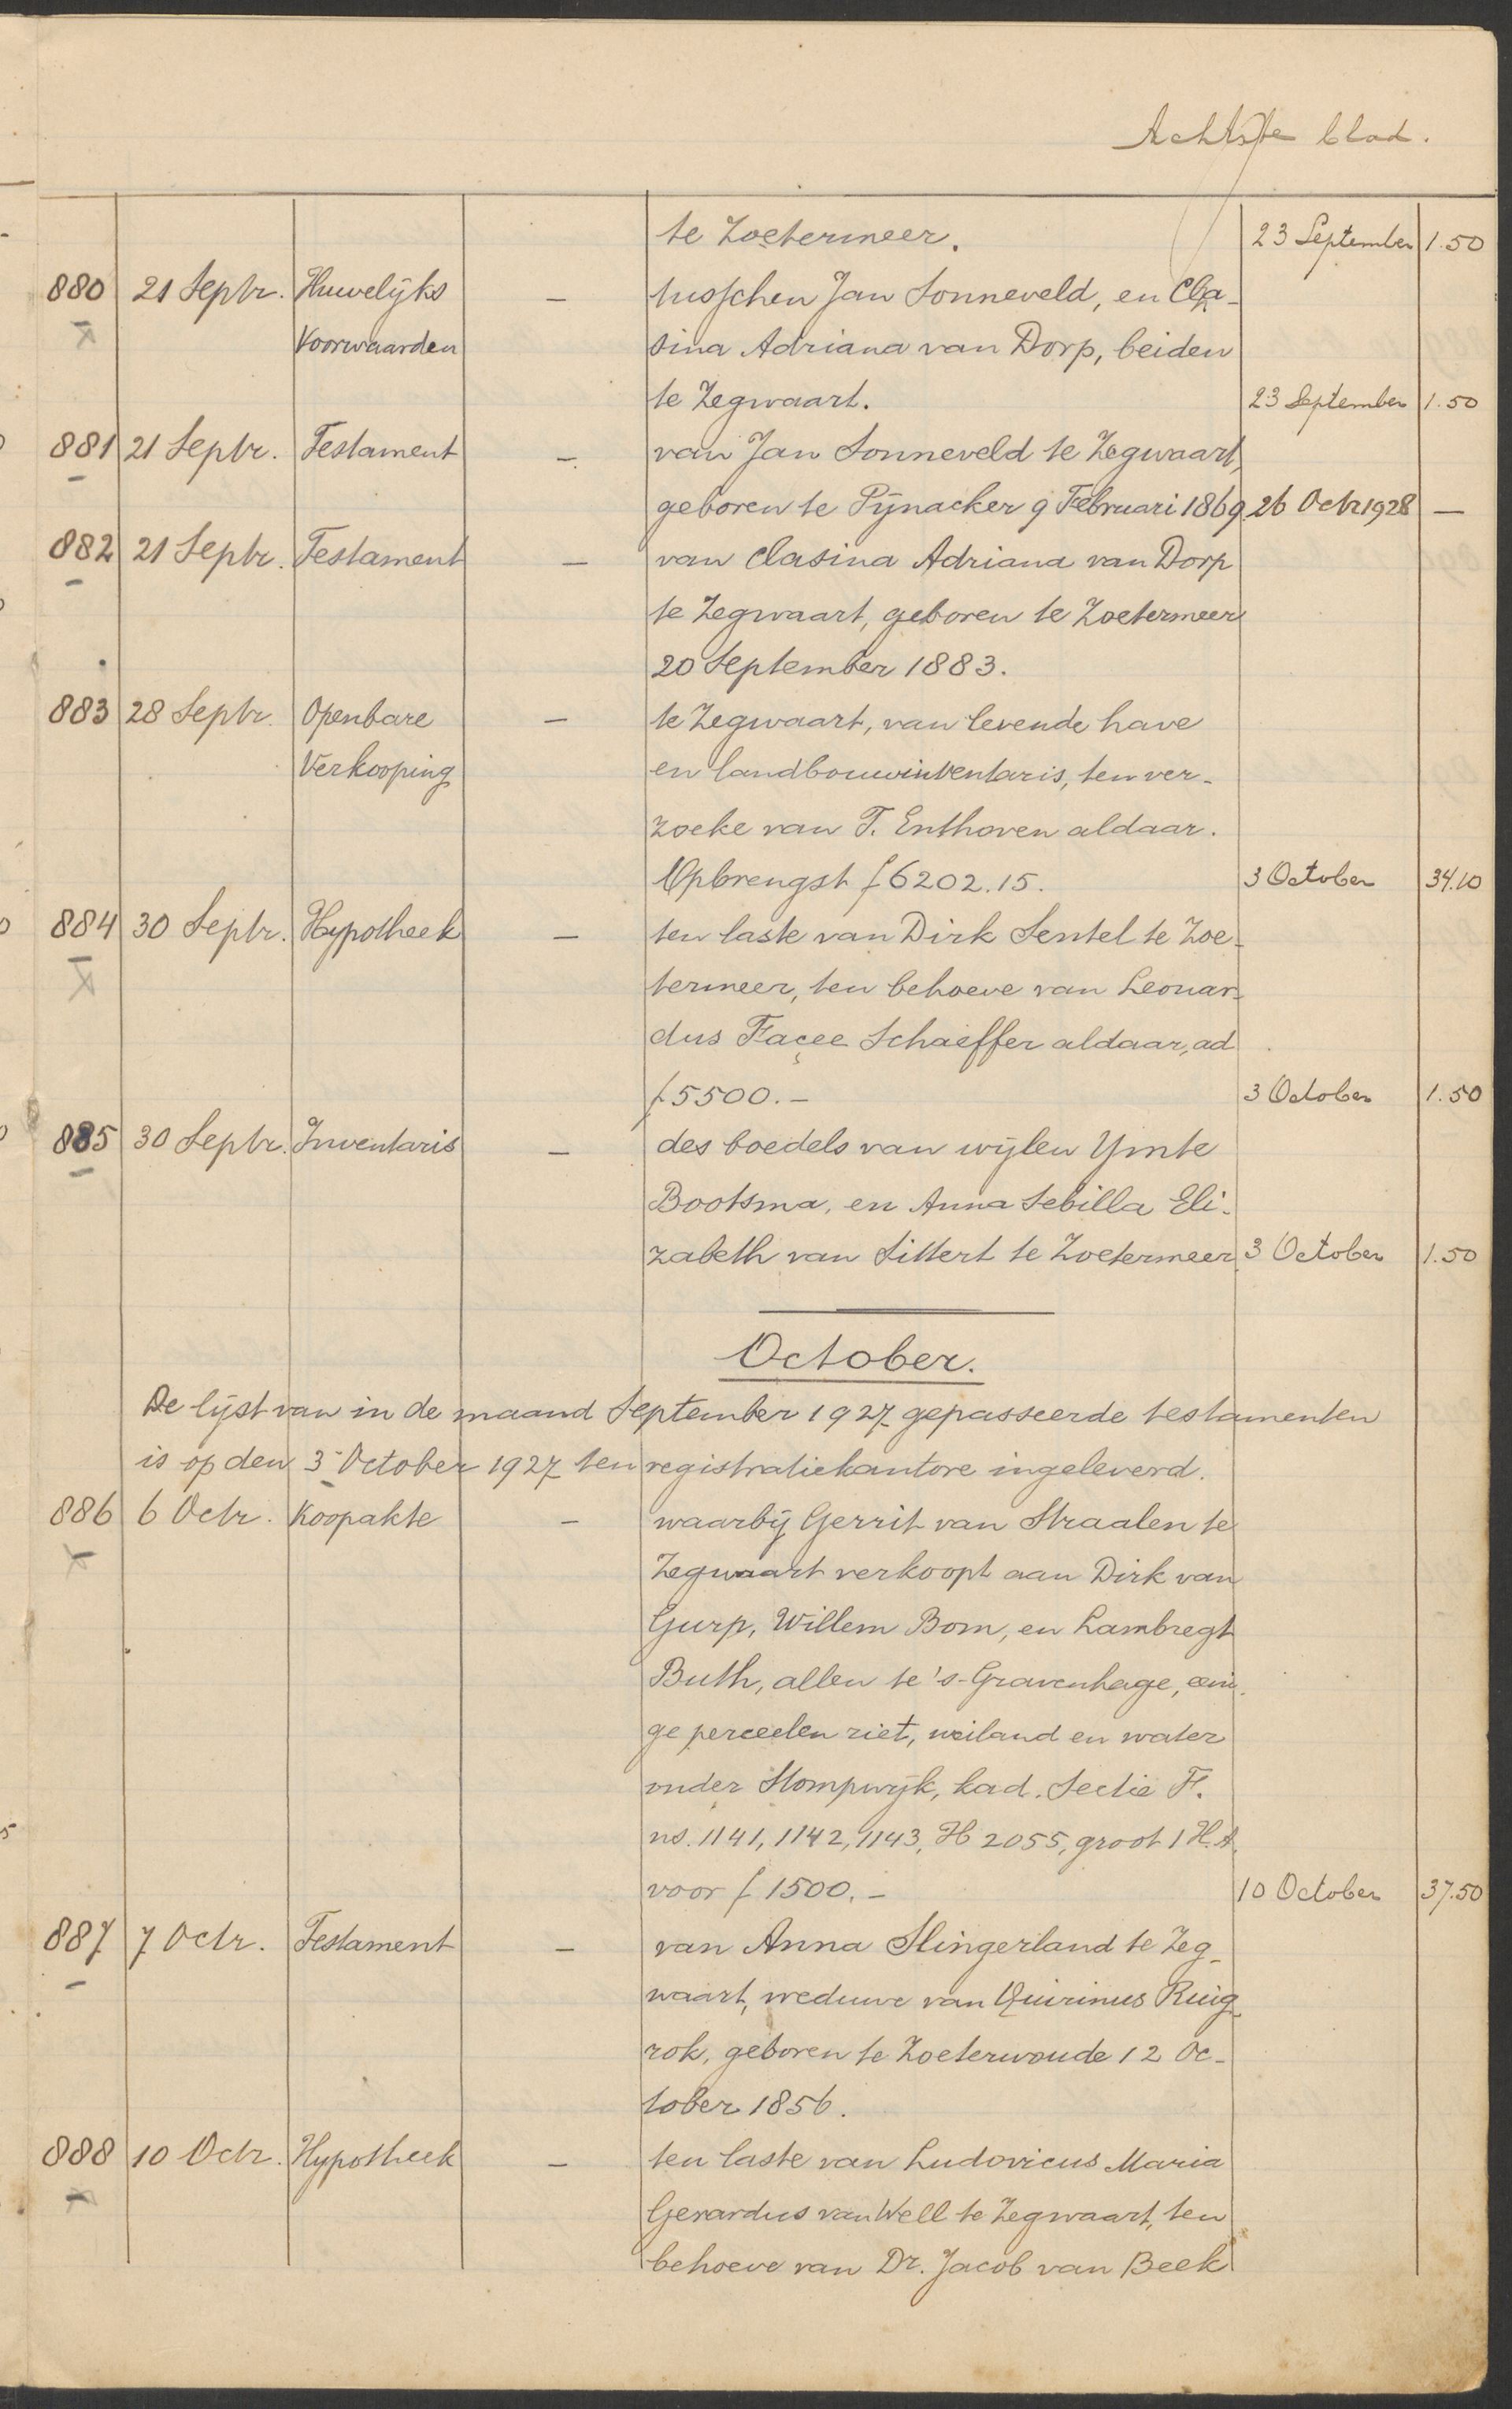 Achtste blad.
te Zoetermeer. 23 September 1.50
880 21 Septr. Huwelijks — tusschen Jan Sonneveld, en Cla-
Voorwaarden sina Adriana van Dorp, beiden
te Zegwaart. 23 September 1.50
881 21 Septr. Testament — van Jan Sonneveld te Zegwaart,
geboren te Pijnacker 9 Februari 1869. 26 Octr 1928 —
882 21 Septr. Testament — van Clasina Adriana van Dorp
te Zegwaart, geboren te Zoetermeer
20 September 1883.
883 28 Septr. Openbare — te Zegwaart, van levende have
Verkooping en landbouwinventaris, ten ver-
zoeke van T. Enthoven aldaar.
Opbrengst f 6202.15. 3 October 34.10
884 30 Septr. Hypotheek — ten laste van Dirk Sentel te Zoe-
termeer, ten behoeve van Leonar-
dus Façee Schaeffer aldaar, ad
f 5500.- 3 October 1.50
885 30 Septr. Inventaris — des boedels van wijlen Ymte
Bootsma, en Anna Sebilla Eli-
zabeth van Sittert te Zoetermeer 3 October 1.50
October.
De lijst van in de maand September 1927 gepasseerde testamenten
is op den 3 October 1927 ten registratiekantore ingeleverd.
886 6 Octr. Koopakte — waarbij Gerrit van Straalen te
Zegwaart verkoopt aan Dirk van
Gurp, Willem Bom, en Lambregt
Buth, allen te 's-Gravenhage, eeni-
ge perceelen riet, weiland en water
onder Stompwijk, kad. Sectie F.
ns. 1141, 1142, 1143, H 2055, groot 1 H.A.
voor f 1500.- 10 October 37.50
887 7 Octr. Testament — van Anna Slingerland te Zeg-
waart, weduwe van Quirinus Ruig-
rok, geboren te Zoeterwoude 12 Oc-
tober 1856.
888 10 Octr. Hypotheek — ten laste van Ludovicus Maria
Gerardus van Well te Zegwaart, ten
behoeve van Dr. Jacob van Beek